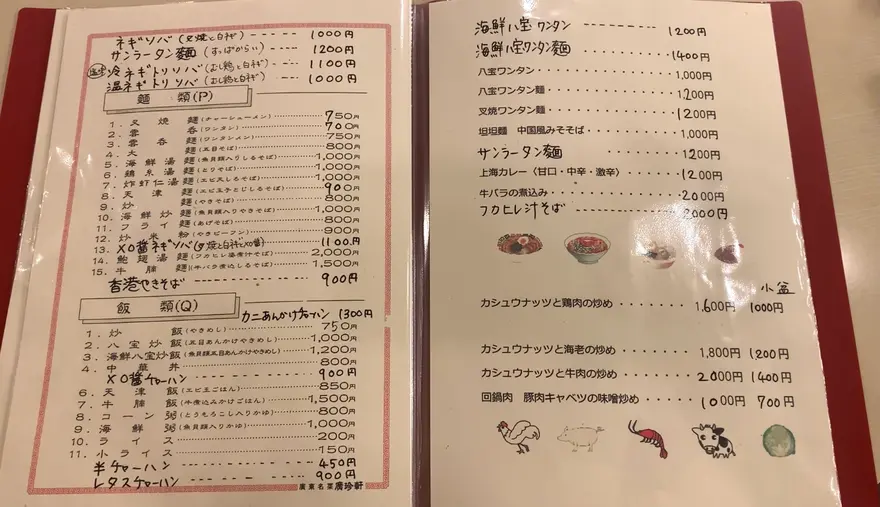 ネギソバ(叉焼と白ネギ) ----- 1000円
サンラータン麺(すっぱからい) ---- 1200円
冷ネギトリソバ(むし鶏と白ネギ) --- 1100円
温ネギトリソバ(むし鶏と白ネギ) --- 1000円
麺 類(P)
1. 叉焼麺(チャーシューメン) 750円
2. 雲呑(ワンタン) 700円
3. 雲呑麺(ワンタンメン) 750円
4. 大麺(五目そば) 800円
5. 海鮮湯麺(魚貝類入りしるそば) 1,000円
6. 鶏糸湯麺(とりそば) 1,000円
7. 炸虾仁湯麺(エビ天しるそば) 1,000円
8. 天津麺(エビ玉子とじしるそば) 900円
9. 炒麺(やきそば) 800円
10. 海鮮炒麺(魚貝類入りやきそば) 1,000円
11. フライ麺(あげそば) 800円
12. 炒米粉(やきビーフン) 900円
13. XO醤ネギソバ(叉焼と白ネギとXO醤) 1100円
14. 鮑翅湯麺(フカヒレ姿煮汁そば) 2,000円
15. 牛腩麺(牛バラ煮込しるそば) 1,500円
香港やきそば ------ 900円
飯 類(Q)
カニあんかけチャーハン 1300円
1. 炒飯(やきめし) 750円
2. 八宝炒飯(五目あんかけやきめし) 1,000円
3. 海鮮八宝炒飯(魚貝類五目あんかけやきめし) 1,200円
4. 中華丼 800円
XO醤チャーハン ------ 900円
6. 天津飯(エビ玉ごはん) 850円
7. 牛腩飯(牛煮込みかけごはん) 1,500円
8. コーン粥(とうもろこし入りかゆ) 800円
9. 海鮮粥(魚貝類入りかゆ) 1,000円
10. ライス 200円
11. 小ライス 150円
半チャーハン ------ 450円
レタスチャーハン ------ 900円
廣東名菜 廣珍軒
海鮮八宝ワンタン ------ 1200円
海鮮八宝ワンタン麺 ------ 1400円
八宝ワンタン 1,000円
八宝ワンタン麺 1,200円
叉焼ワンタン麺 1200円
坦坦麺 中国風みそそば 1,000円
サンラータン麺 1200円
上海カレー〈甘口・中辛・激辛〉 1200円
牛バラの煮込み 2000円
フカヒレ汁そば ------ 2000円
小盆
カシュウナッツと鶏肉の炒め 1,600円 1000円
カシュウナッツと海老の炒め 1,800円 1200円
カシュウナッツと牛肉の炒め 2000円 1400円
回鍋肉 豚肉キャベツの味噌炒め 1000円 700円